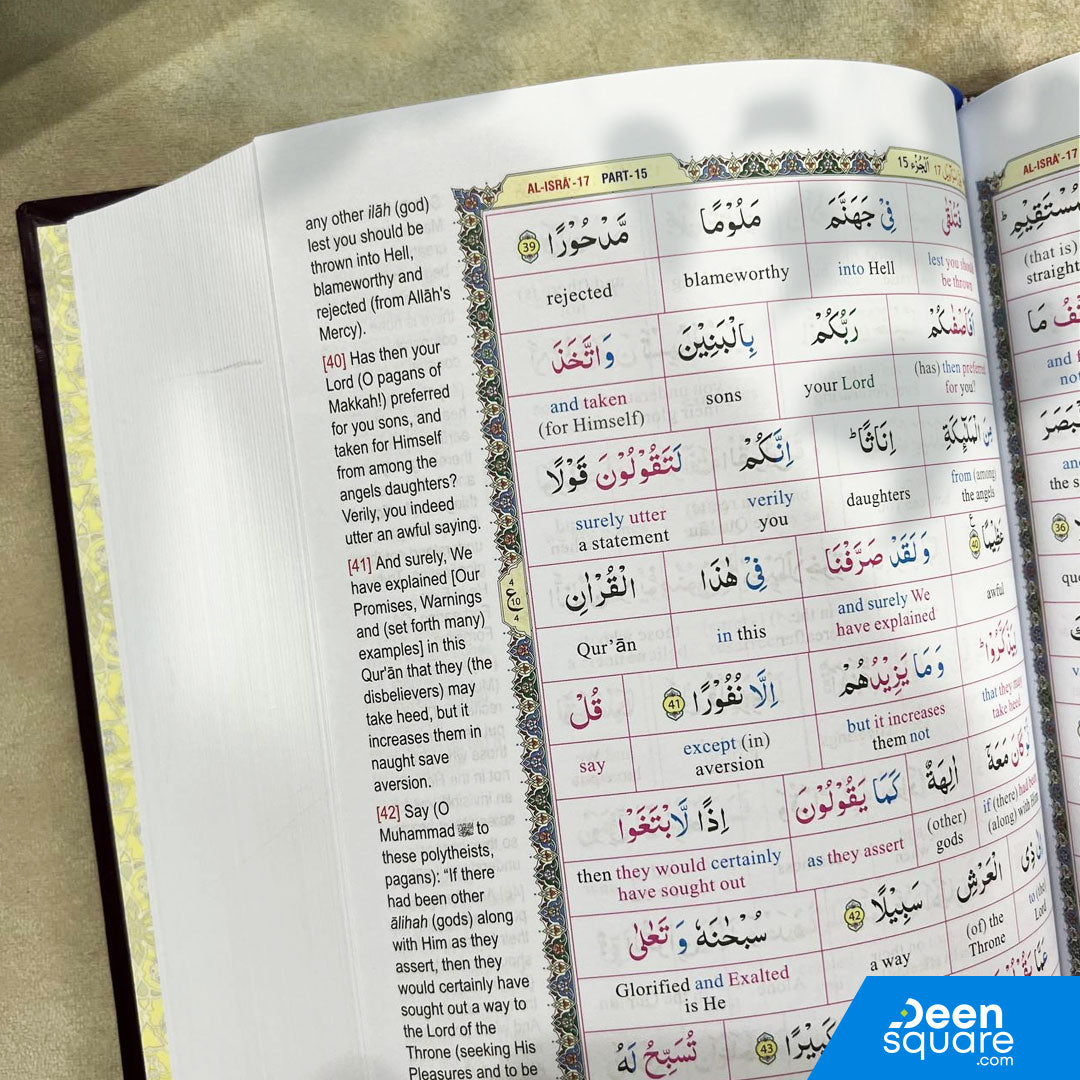 any other ilāh (god)
lest you should be
thrown into Hell,
blameworthy and
rejected (from Allāh's
Mercy).
[40] Has then your
Lord (O pagans of
Makkah!) preferred
for you sons, and
taken for Himself
from among the
angels daughters?
Verily, you indeed
utter an awful saying.
[41] And surely, We
have explained [Our
Promises, Warnings
and (set forth many)
examples] in this
Qur'ān that they (the
disbelievers) may
take heed, but it
increases them in
naught save
aversion.
[42] Say (O
Muhammad ﷺ to
these polytheists,
pagans): “If there
had been other
ālihah (gods) along
with Him as they
assert, then they
would certainly have
sought out a way to
the Lord of the
Throne (seeking His
Pleasures and to be
AL-ISRĀ'-17 PART-15
اَلْجُزْء 15
فَتُلْقٰى فِيْ جَهَنَّمَ مَلُوْمًا مَّدْحُوْرًا 39
rejected blameworthy into Hell lest you should
be thrown
اَفَاَصْفٰىكُمْ رَبُّكُمْ بِالْبَنِيْنَ وَاتَّخَذَ
and taken
(for Himself) sons your Lord (has) then preferred
for you?
مِنَ الْمَلٰٓئِكَةِ اِنَاثًا ؕ اِنَّكُمْ لَتَقُوْلُوْنَ قَوْلًا
surely utter
a statement verily
you daughters from (among)
the angels
عَظِيْمًا 40 وَلَقَدْ صَرَّفْنَا فِيْ هٰذَا الْقُرْاٰنِ
4
ع
10
4
Qur’ān in this and surely We
have explained awful
لِيَذَّكَّرُوْا ؕ وَمَا يَزِيْدُهُمْ اِلَّا نُفُوْرًا 41 قُلْ
say except (in)
aversion but it increases
them not that they may
take heed
لَّوْ كَانَ مَعَهٗٓ اٰلِهَةٌ كَمَا يَقُوْلُوْنَ اِذًا لَّابْتَغَوْا
then they would certainly
have sought out as they assert (other)
gods if (there) had been
(along) with Him
اِلٰى ذِي الْعَرْشِ سَبِيْلًا 42 سُبْحٰنَهٗ وَتَعٰلٰى
Glorified and Exalted
is He a way (of) the
Throne to (the)
Lord
عَمَّا يَقُوْلُوْنَ
كَبِيْرًا 43 تُسَبِّحُ لَهُ
AL-ISRĀ'-17
مُسْتَقِيْمِ ؕ
(that is)
straight
مَا
not
and
the s
36
Deen
square
.com